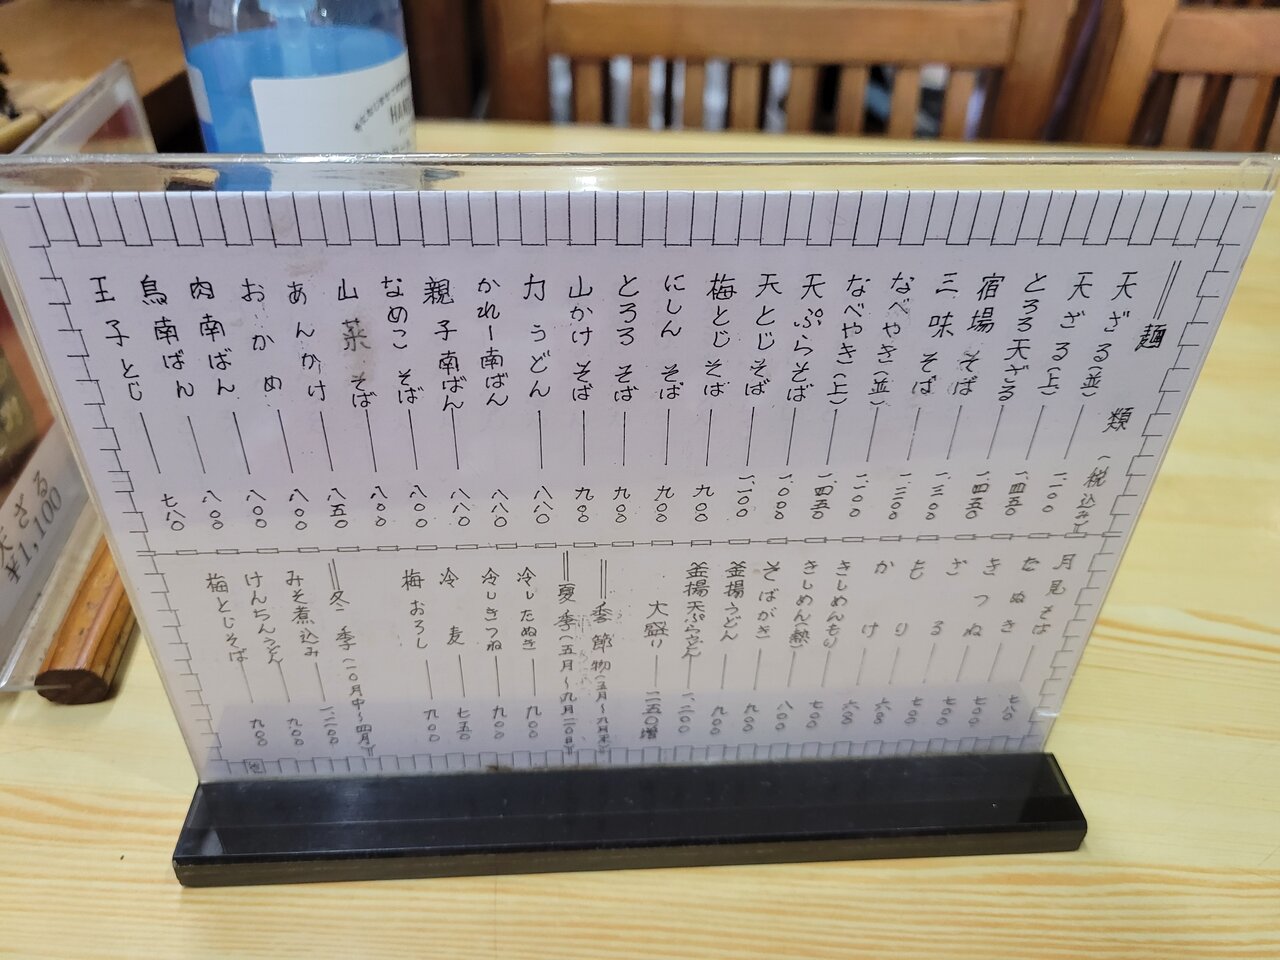 麺類（税込み）
天ざる（並）――一、一〇〇
天ざる（上）――一、四五〇
とろろ天ざる――一、四五〇
宿場そば――一、三〇〇
三味そば――一、三〇〇
なべやき（並）――一、一〇〇
なべやき（上）――一、四五〇
天ぷらそば――一、〇〇〇
天とじそば――一、一〇〇
梅とじそば――九〇〇
にしんそば――九〇〇
とろろそば――九〇〇
山かけそば――九〇〇
力うどん――八八〇
かれー南ばん――八八〇
親子南ばん――八八〇
なめこそば――八〇〇
山菜そば――八〇〇
あんかけ――八五〇
おかめ――八〇〇
肉南ばん――八〇〇
鳥南ばん――八〇〇
玉子とじ――七八〇
月見そば――七八〇
たぬき――七〇〇
きつね――七〇〇
ざる――七〇〇
もり
かけ
きしめんもり――七〇〇
きしめん（熱）――八〇〇
そばがき――九〇〇
釜揚うどん――九〇〇
釜揚天ぷらうどん――一、二〇〇
大盛り――二五〇増
季節物（五月〜九月末）
夏季（五月〜九月二〇日）
冷したぬき――九〇〇
冷しきつね――九〇〇
冷麦――七五〇
梅おろし――九〇〇
冬季（一〇月中〜四月）
みそ煮込み――一、二〇〇
けんちんうどん――九〇〇
梅とじそば――九〇〇
天ざる
¥1,100